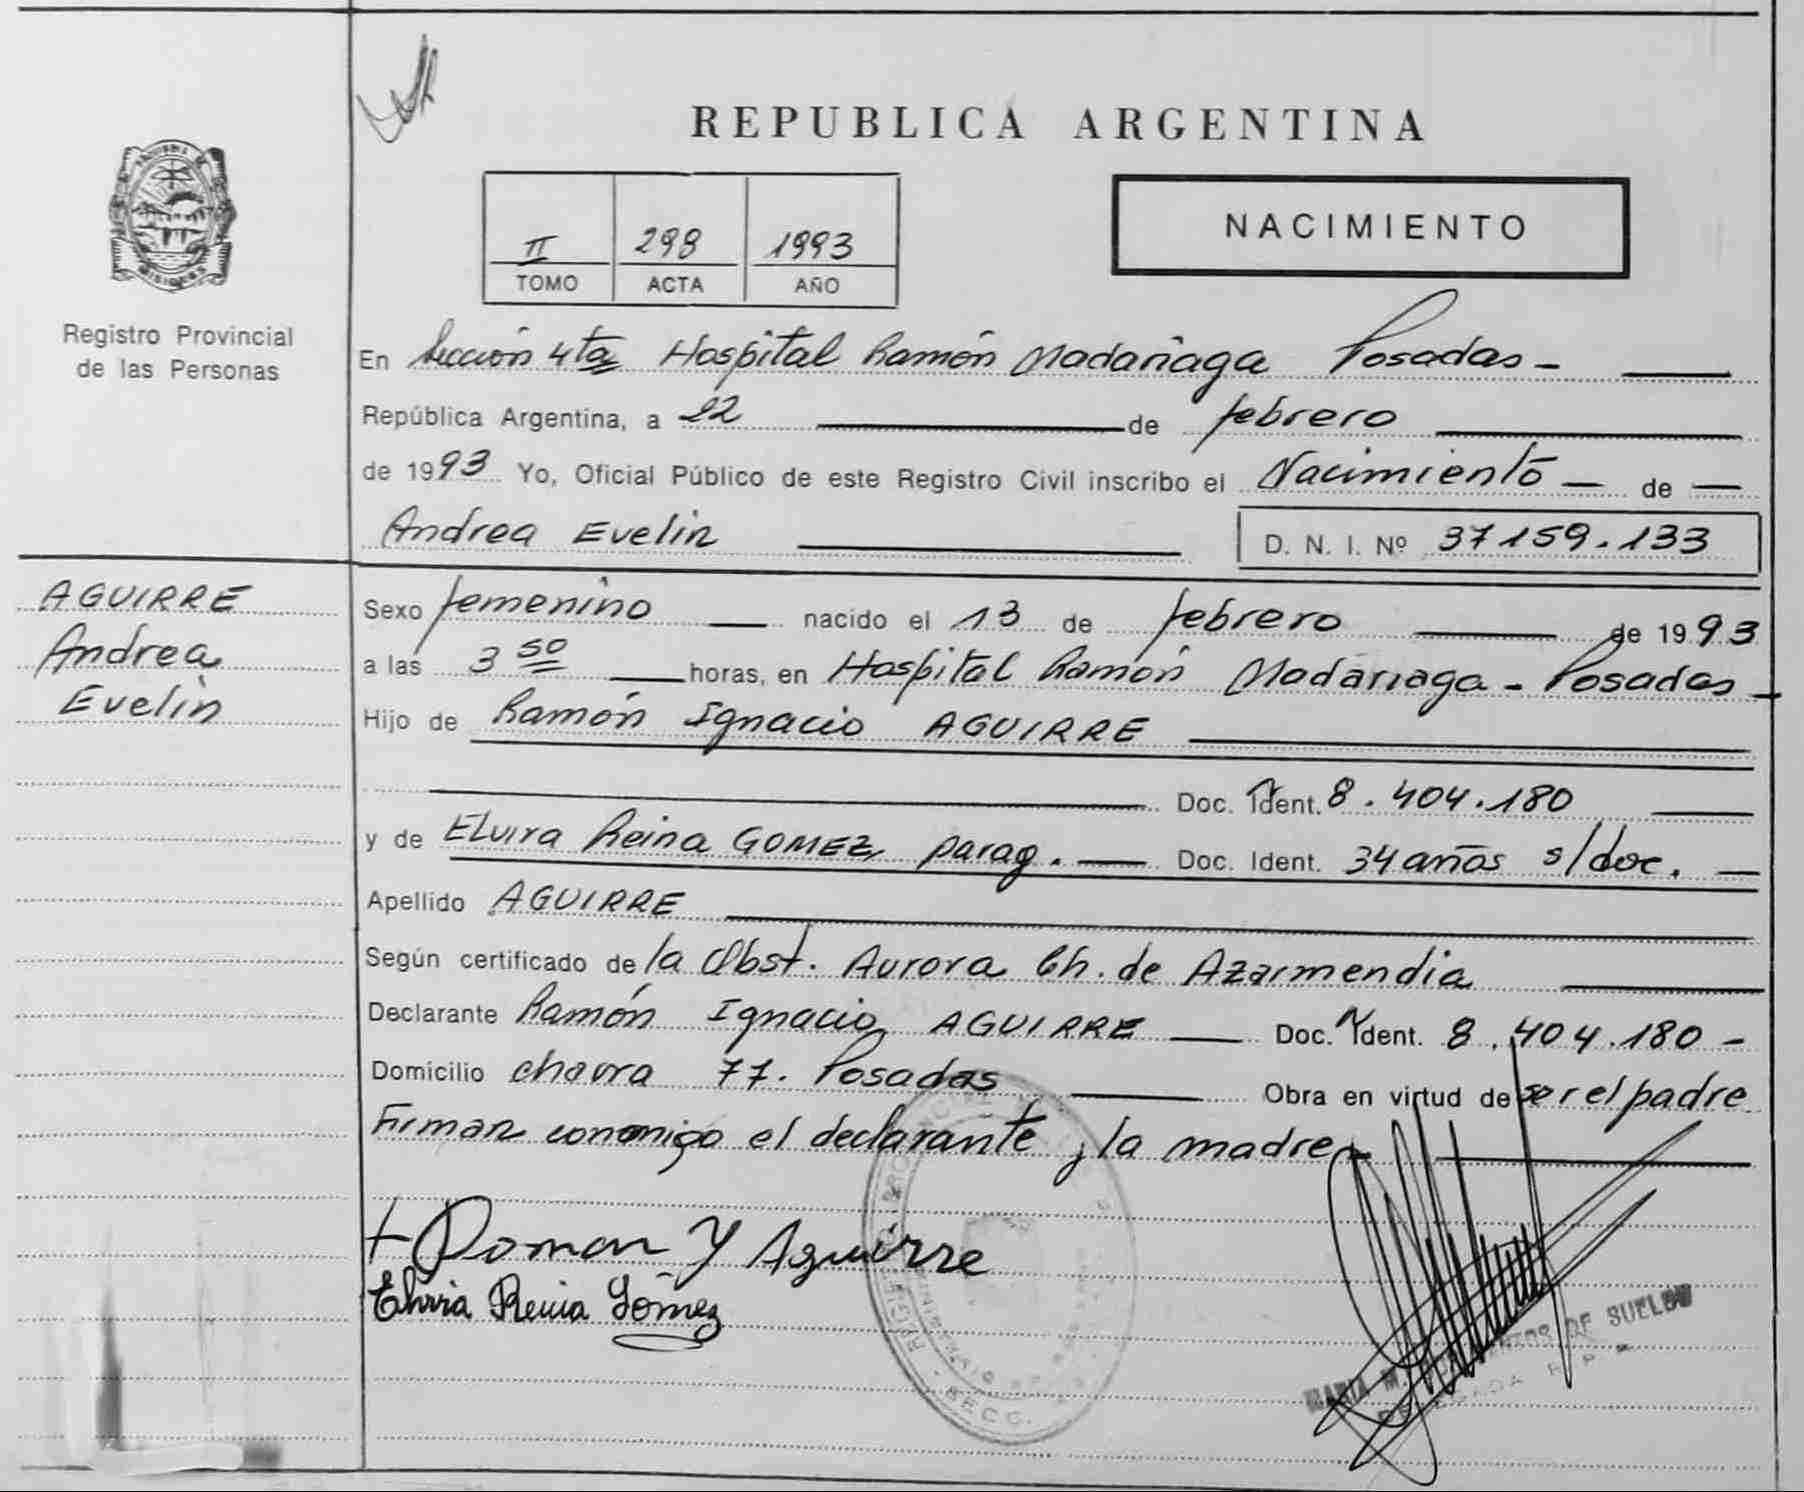 REPUBLICA ARGENTINA
II 298 1993
TOMO ACTA AÑO
NACIMIENTO
Registro Provincial
de las Personas
En Sección 4ta Hospital Ramón Madariaga Posadas -
República Argentina, a 22 de febrero
de 1993 Yo, Oficial Público de este Registro Civil inscribo el Nacimiento de
Andrea Evelin D. N. I. Nº 37159.133
AGUIRRE
Andrea
Evelin
Sexo femenino nacido el 13 de febrero de 1993
a las 3 50 horas, en Hospital Ramón Madariaga - Posadas -
Hijo de Ramón Ignacio AGUIRRE
Doc. Ident. 8.404.180
y de Elvira Reina GOMEZ parag. Doc. Ident. 34 años s/doc.
Apellido AGUIRRE
Según certificado de la Obst. Aurora Ch. de Azarmendia
Declarante Ramón Ignacio AGUIRRE Doc. Ident. 8.404.180 -
Domicilio chacra 77. Posadas Obra en virtud de ser el padre
Firman conmigo el declarante y la madre
Roman Y Aguirre
Elvira Reina Gómez
MARIA M. DE SUELDO
DELEGADA R P P